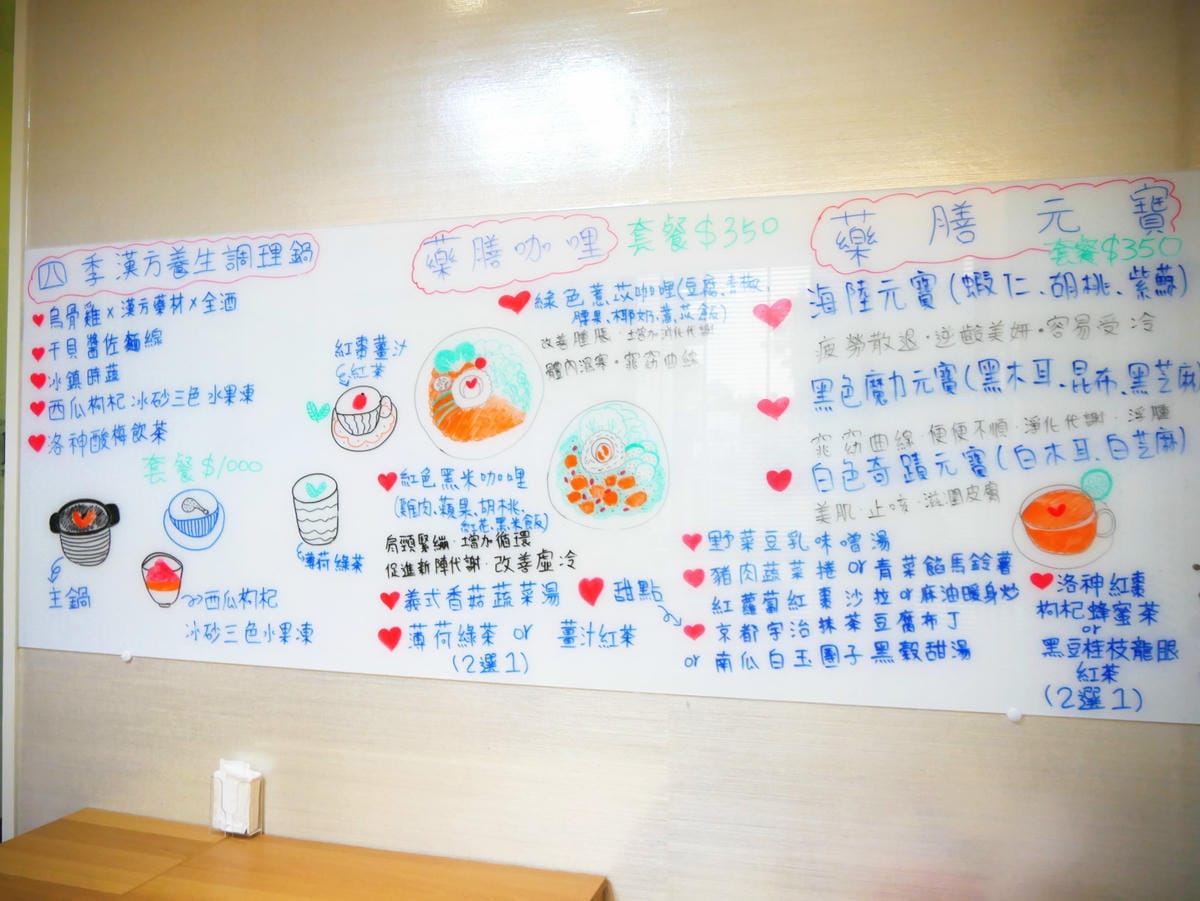 四季漢方養生調理鍋
烏骨雞×漢方藥材×全酒
干貝醬佐麵線
冰鎮時蔬
西瓜枸杞冰砂三色水果凍
洛神酸梅飲茶
套餐$1000
主鍋
西瓜枸杞
冰砂三色水果凍
紅棗薑汁
紅茶
薄荷綠茶
藥膳咖哩
套餐$350
綠色薏苡咖哩(豆腐、青椒、
腰果、椰奶、薏苡飯)
改善腫脹·增加消化代謝
體內濕寒·窈窕曲線
紅色黑米咖哩
(雞肉、蘋果、胡桃、
紅花、黑米飯)
肩頸緊繃·增加循環
促進新陳代謝·改善虛冷
義式香菇蔬菜湯
薄荷綠茶 or 薑汁紅茶
(2選1)
甜點
藥膳元寶
套餐$350
海陸元寶(蝦仁、胡桃、紫蘇)
疲勞散退·逆齡美妍·容易受冷
黑色魔力元寶(黑木耳、昆布、黑芝麻
窕窈曲線·便便不順·淨化代謝·浮腫
白色奇蹟元寶(白木耳、白芝麻)
美肌·止咳·滋潤皮膚
野菜豆乳味噌湯
豬肉蔬菜捲 or 青菜餡馬鈴薯
紅蘿蔔紅棗沙拉 or 麻油暖身炒
京都宇治抹茶豆腐布丁
or 南瓜白玉團子黑穀甜湯
洛神紅棗
枸杞蜂蜜茶
or
黑豆桂枝龍眼
紅茶
(2選1)